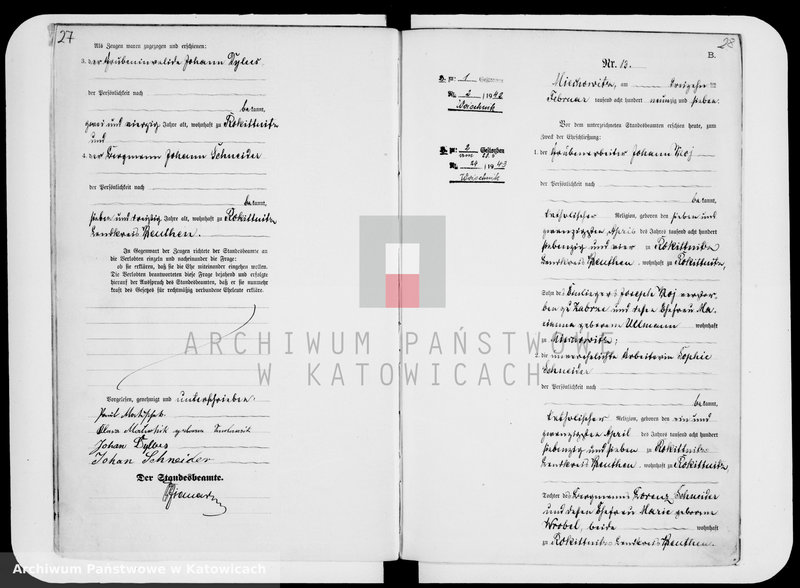 27
Als Zeugen waren zugezogen und erschienen:
3. der Grubeninvalide Johann Dylus
der Persönlichkeit nach
bekannt,
zwei und vierzig Jahre alt, wohnhaft zu Rokittnitz
und
4. der Bergmann Johann Schneider
der Persönlichkeit nach
bekannt,
sieben und dreißig Jahre alt, wohnhaft zu Rokittnitz
Landkreis Beuthen.
In Gegenwart der Zeugen richtete der Standesbeamte an
die Verlobten einzeln und nacheinander die Frage:
ob sie erklären, daß sie die Ehe miteinander eingehen wollen.
Die Verlobten beantworteten diese Frage bejahend und erfolgte
hierauf der Ausspruch des Standesbeamten, daß er sie nunmehr
kraft des Gesetzes für rechtmäßig verbundene Eheleute erkläre.
Vorgelesen, genehmigt und unterschrieben.
Paul
Clara geborene
Johan Dylus
Johan Schneider
Der Standesbeamte.
28
B.
Nr. 13.
Miechowitz, am dreizehn ten
Februar tausend acht hundert neunzig und sieben.
Vor dem unterzeichneten Standesbeamten erschien heute, zum
Zweck der Eheschließung:
1. der Grubenarbeiter Johann Moj
der Persönlichkeit nach
bekannt,
katholischer Religion, geboren den sieben und
zwanzigsten April des Jahres tausend acht hundert
siebenzig und vier zu Rokittnitz
Landkreis Beuthen, wohnhaft zu Rokittnitz,
Sohn des Einliegers Joseph Moj verstor-
ben zu Zabrze und dessen Ehefrau Ma-
rianna geborenen Ullmann wohnhaft
zu Miechowitz;
2. die unverehelichte Arbeiterin Sophie
Schneider
der Persönlichkeit nach
bekannt,
katholischer Religion, geboren den ein und
zwanzigsten April des Jahres tausend acht hundert
siebenzig und sieben zu Rokittnitz
Landkreis Beuthen, wohnhaft zu Rokittnitz,
Tochter des Bergmanns Lorenz Schneider
und dessen Ehefrau Marie geborene
Wrobel, beide wohnhaft
zu Rokittnitz Landkreis Beuthen.
1 Gestorben
Nr. 2 /1942
2 Gestorben
Nr. 24 /1943
ARCHIWUM PAŃSTWOWE
W KATOWICACH
Archiwum Państwowe w Katowicach